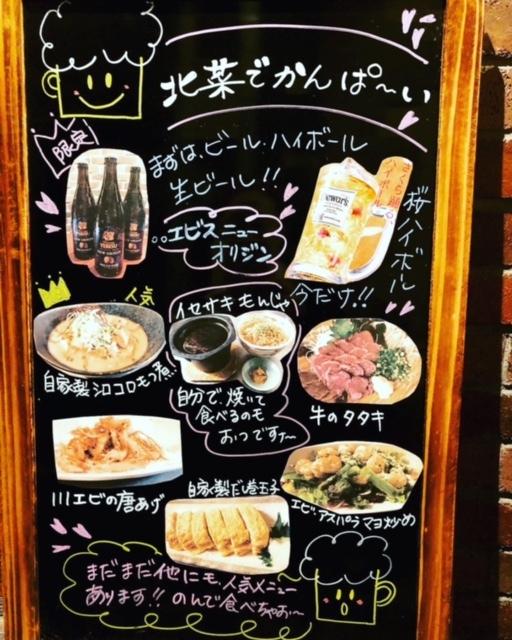 北菜でかんぱ〜い
限定
まずは、ビール・ハイボール
生ビール!!
エビスニュー
オリジン
桜ハイボール
今だけ!!
人気
自家製シロコロもつ煮
イセサキもんじゃ
自分で焼いて
食べるのも
おつですナ〜
牛のタタキ
川エビの唐あげ
自家製だし巻玉子
エビ・アスパラマヨ炒め
まだまだ他にも、人気メニュー
あります!! のんで食べちゃお〜